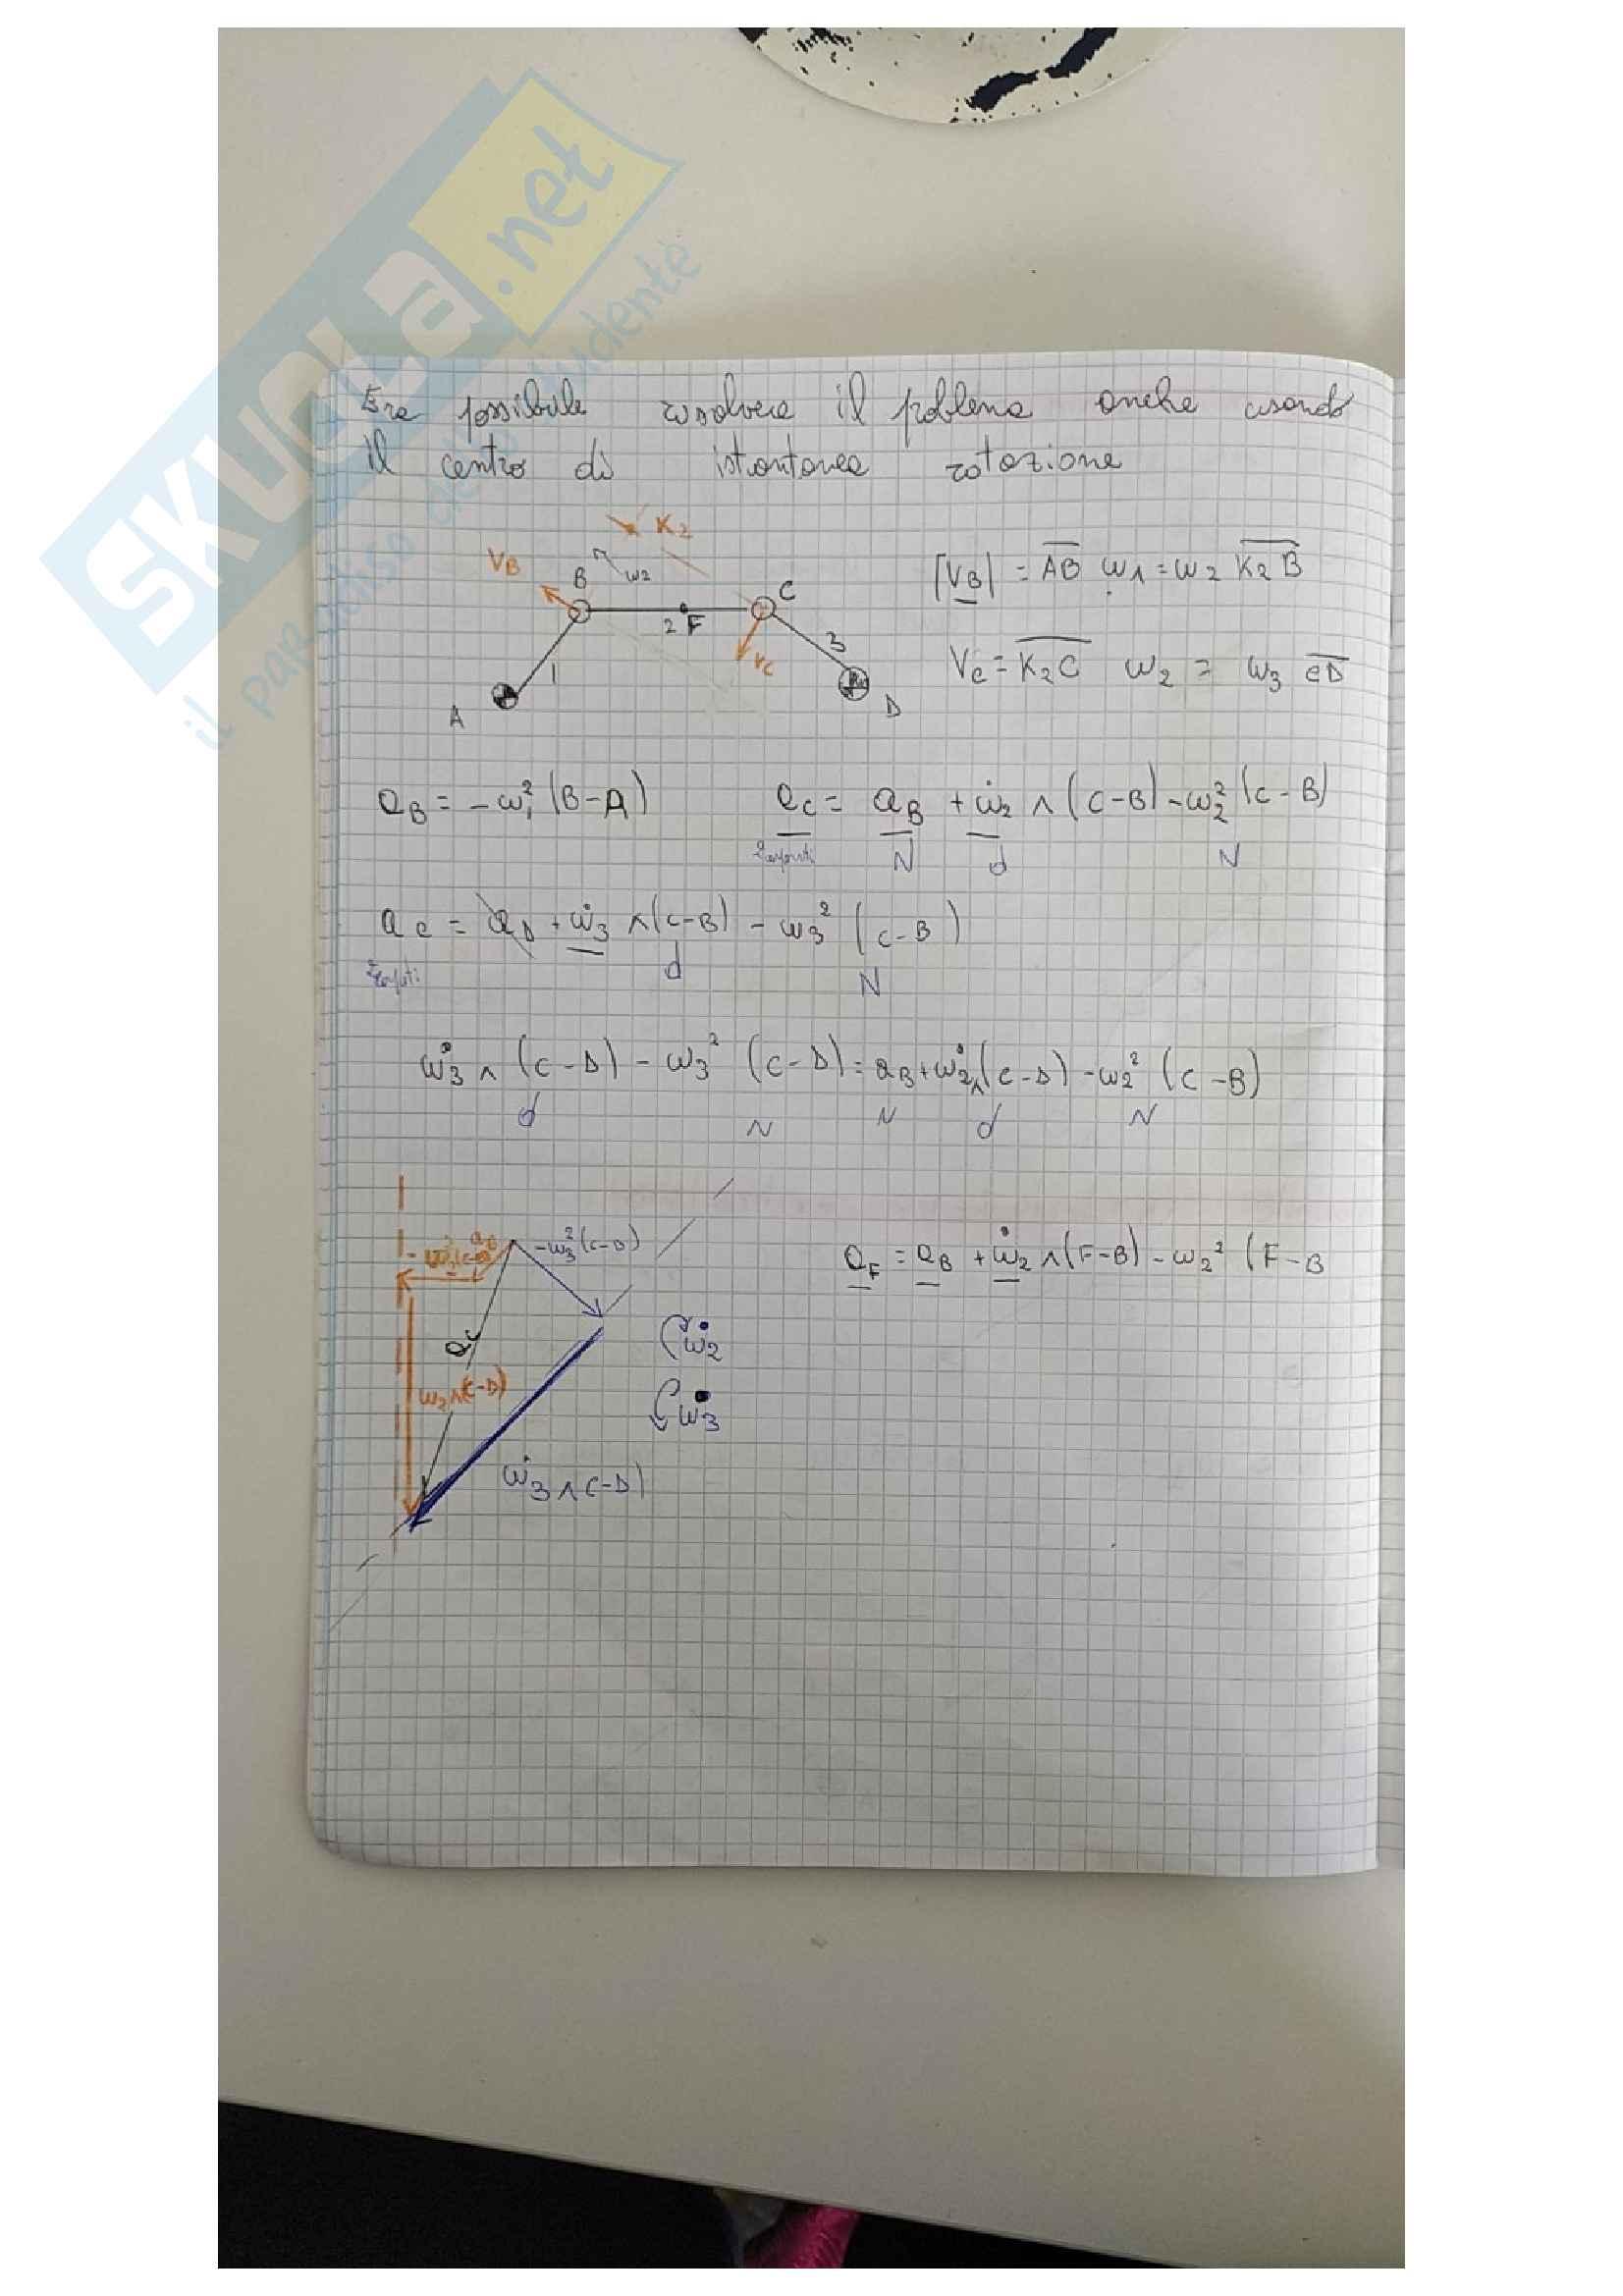 SKUOLa.net
il paradiso dello studente
Era possibile risolvere il problema anche usando
il centro di istantanea rotazione
K2
VB
B
ω2
C
2 F
3
VC
1
A
D
|VB| = AB ω1 = ω2 K2B
VC = K2C ω2 = ω3 CD
aB = -ω1² (B-A)
aC = aB + ω̇2 ∧ (C-B) - ω2² (C-B)
N d N
aC = aD + ω̇3 ∧ (C-B) - ω3² (C-B)
d N
ω̇3 ∧ (C-D) - ω3² (C-D) = aB + ω̇2 ∧ (C-D) - ω2² (C-B)
d N N d N
-ω3² (C-D)
aF = aB + ω̇2 ∧ (F-B) - ω2² (F-B
aC
ω̇2
ω2 ∧ (C-D)
ω̇3
ω̇3 ∧ C-D)